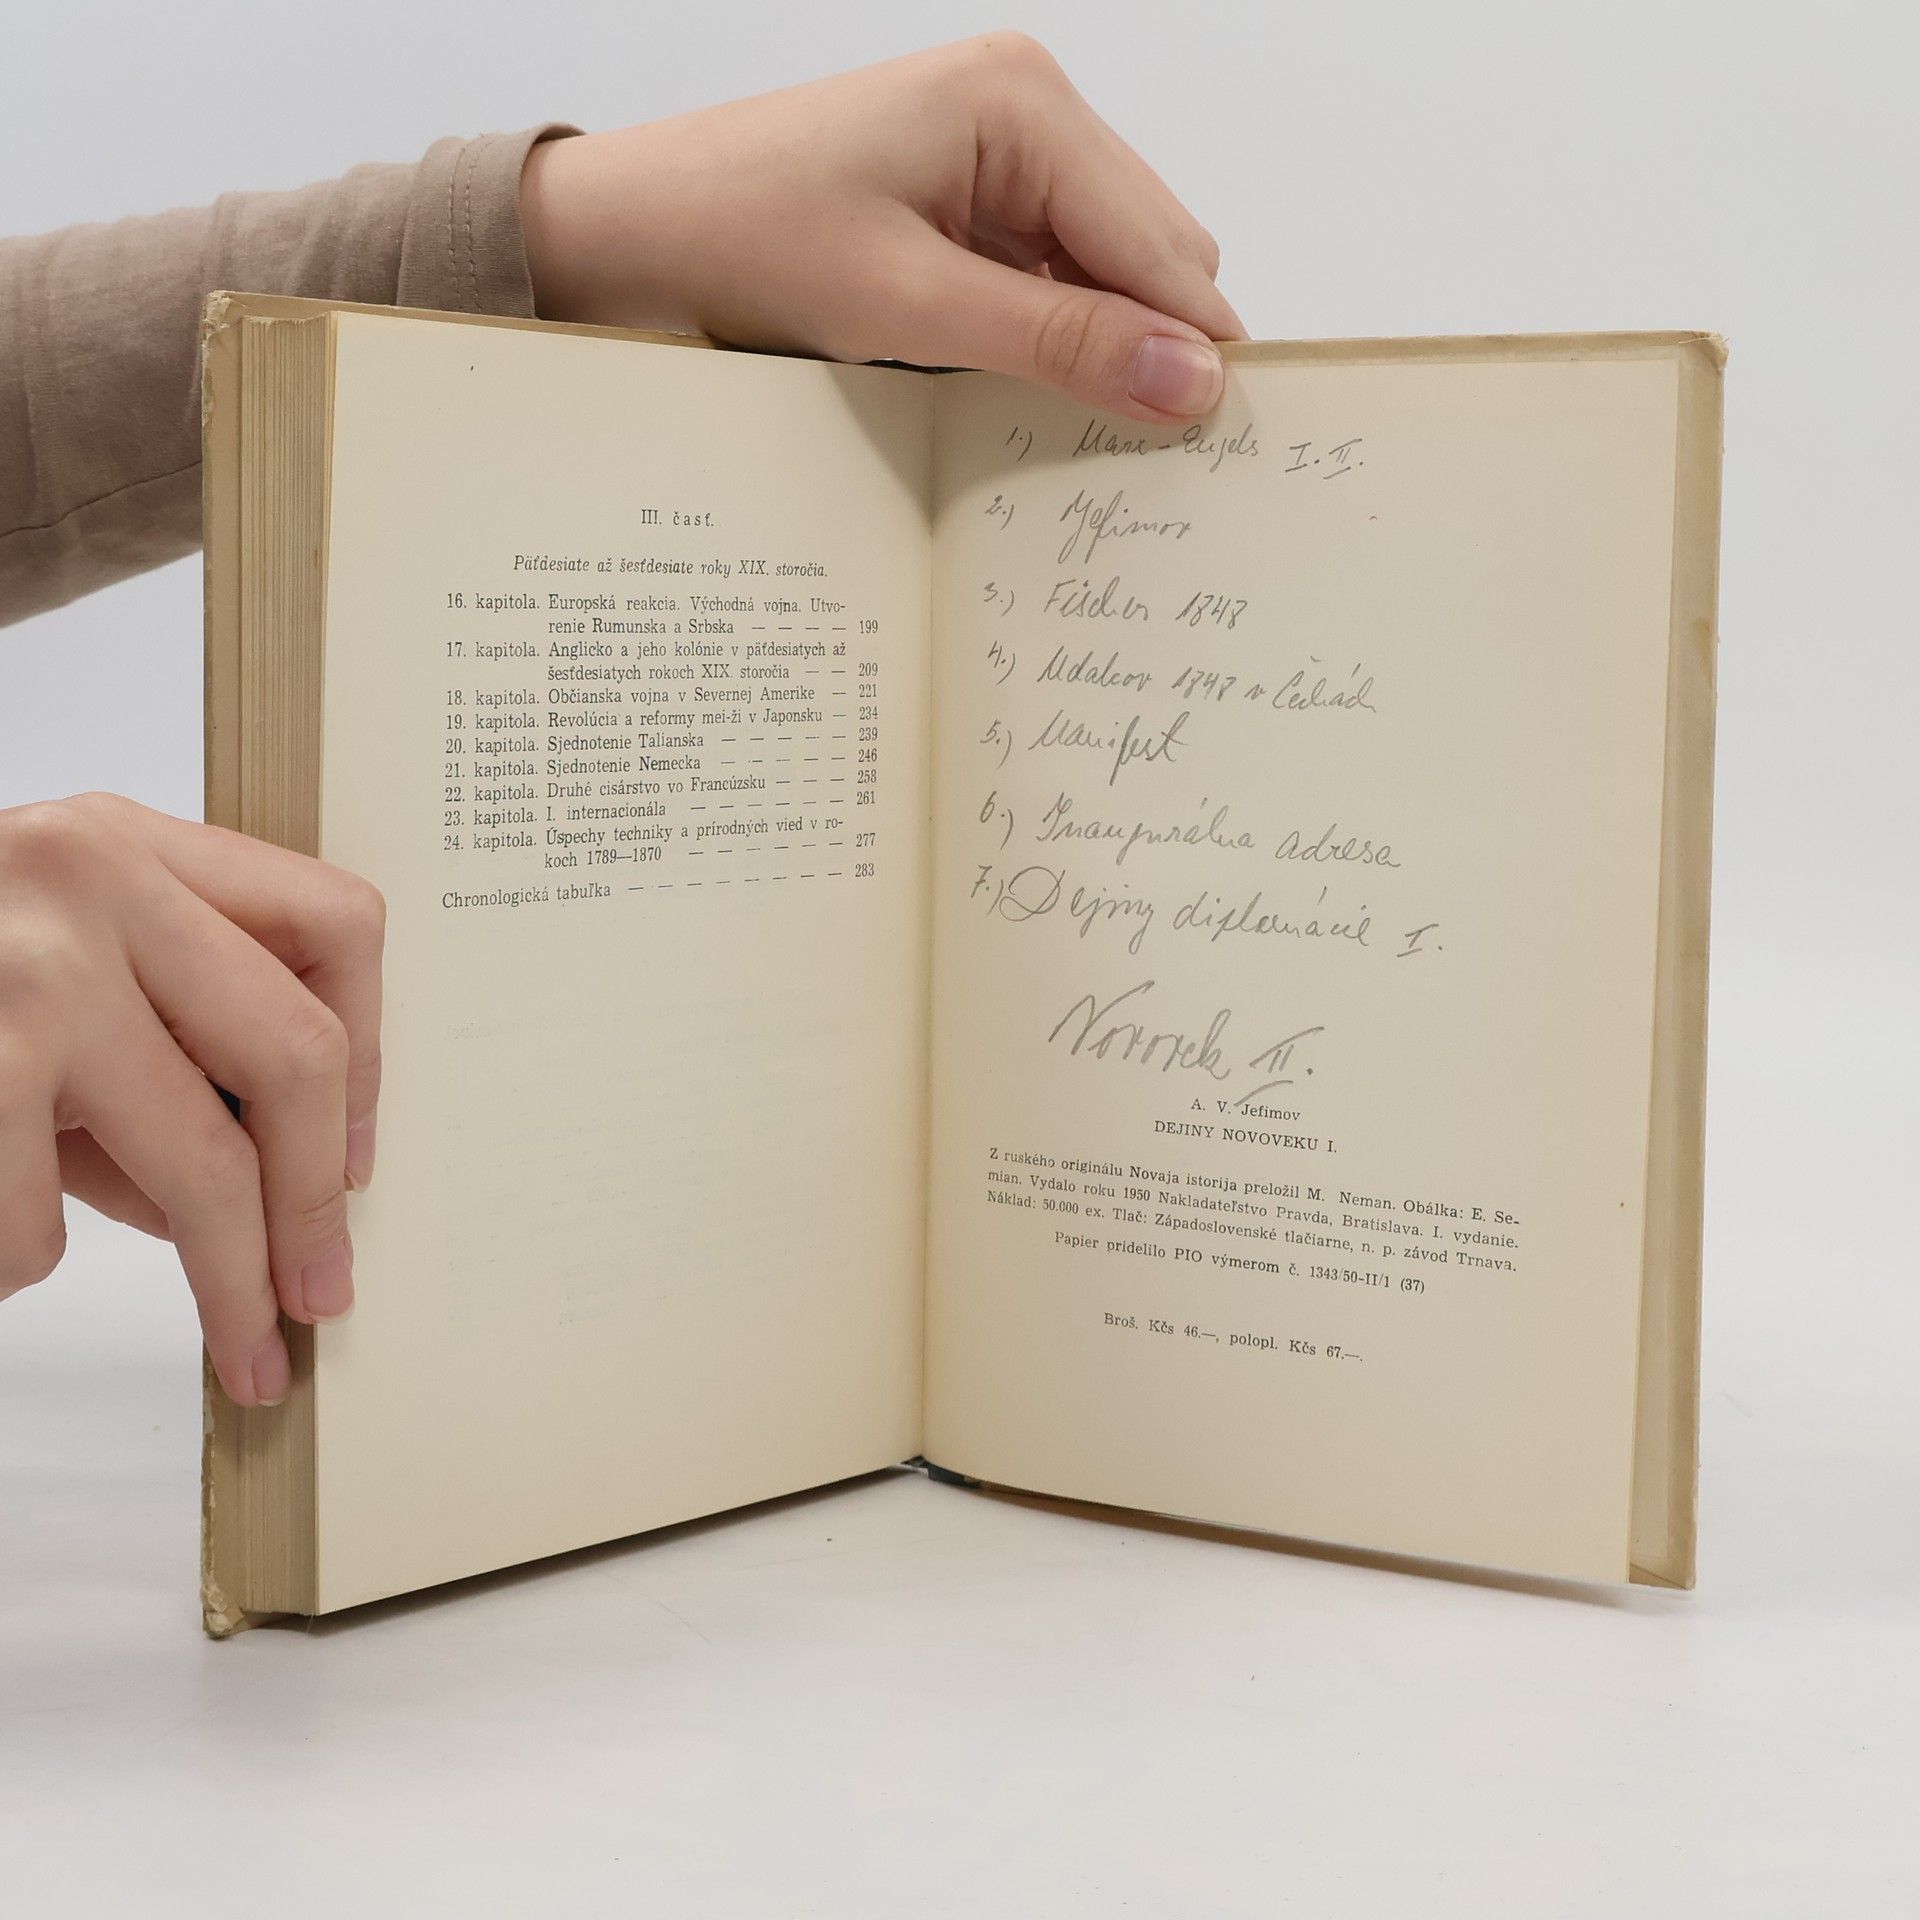 III. časť.
Päťdesiate až šesťdesiate roky XIX. storočia.
16. kapitola. Európska reakcia. Východná vojna. Utvo-
renie Rumunska a Srbska — — — — 199
17. kapitola. Anglicko a jeho kolónie v päťdesiatych až
šesťdesiatych rokoch XIX. storočia — — 209
18. kapitola. Občianska vojna v Severnej Amerike — 221
19. kapitola. Revolúcia a reformy mei-ži v Japonsku — 234
20. kapitola. Sjednotenie Talianska — — — — — 239
21. kapitola. Sjednotenie Nemecka — — — — — 246
22. kapitola. Druhé cisárstvo vo Francúzsku — — — 258
23. kapitola. I. internacionála — — — — — — 261
24. kapitola. Úspechy techniky a prírodných vied v ro-
koch 1789—1870 — — — — — — 277
Chronologická tabuľka — — — — — — — — 283
1.) Marx - Engels I. II.
2.) Jefimov
3.) Fischer 1848
4.) Udalcov 1848 v Čechách
5.) Manifest
6.) Inaugurálna adresa
7.) Dejiny diplomácie I.
Novovek II.
A. V. Jefimov
DEJINY NOVOVEKU I.
Z ruského originálu Novaja istorija preložil M. Neman. Obálka: E. Se-
mian. Vydalo roku 1950 Nakladateľstvo Pravda, Bratislava. I. vydanie.
Náklad: 50.000 ex. Tlač: Západoslovenské tlačiarne, n. p. závod Trnava.
Papier pridelilo PIO výmerom č. 1343/50-II/1 (37)
Broš. Kčs 46.—, polopl. Kčs 67.—.